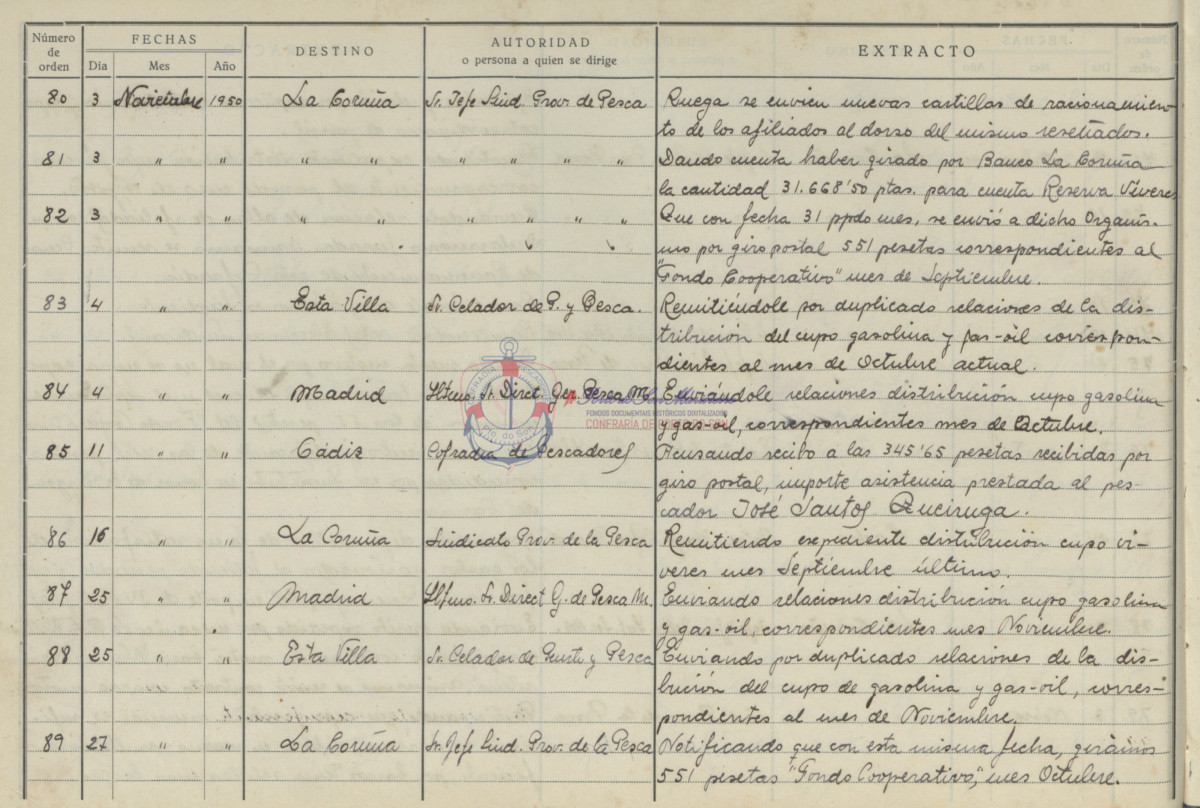 Número de orden FECHAS DESTINO AUTORIDAD o persona a quien se dirige EXTRACTO
Dia Mes Año
80 3 Noviembre 1950 La Coruña Sr. Jefe Sind. Prov. de Pesca Ruega se envien nuevas cartillas de racionamien-
to de los afiliados al dorso del mismo reseñados.
81 3 " " " " " " " " Dando cuenta haber girado por Banco La Coruña
la cantidad 31.668'50 ptas. para cuenta Reserva Víveres
82 3 " " " " " " " " Que con fecha 31 ppdo mes, se envió a dicho Organis-
mo por giro postal 551 pesetas correspondientes al
"Fondo Cooperativo" mes de Septiembre.
83 4 " " Esta Villa Sr. Celador de P. y Pesca. Remitiéndole por duplicado relaciones de la dis-
tribución del cupo gasolina y gas-oil correspon-
dientes al mes de Octubre actual.
84 4 " " Madrid Iltmo. Sr. Direct. Ger. Pesca M. Enviándole relaciones distribución cupo gasolina
y gas-oil, correspondientes mes de Octubre.
85 11 " " Cádiz Cofradia de Pescadores Acusando recibo a las 345'65 pesetas recibidas por
giro postal, importe asistencia prestada al pes-
cador José Santos Queiruga.
86 16 " " La Coruña Sindicato Prov. de la Pesca Remitiendo expediente distribución cupo ví-
veres mes Septiembre último.
87 25 " " Madrid Iltmo. Sr. Direct G. de Pesca M. Enviando relaciones distribución cupo gasolina
y gas-oil, correspondientes mes Noviembre.
88 25 " " Esta Villa Sr. Celador de Puerto y Pesca Enviando por duplicado relaciones de la dis-
bución del cupo de gasolina y gas-oil, corres-
pondientes al mes de Noviembre.
89 27 " " La Coruña Sr. Jefe Sind. Prov. de la Pesca Notificando que con esta misma fecha, girámos
551 pesetas "Fondo Cooperativo", mes Octubre.
FONDOS DOCUMENTAIS HISTÓRICOS DIXITALIZADOS
CONFRARÍA DE
Pto. do Son